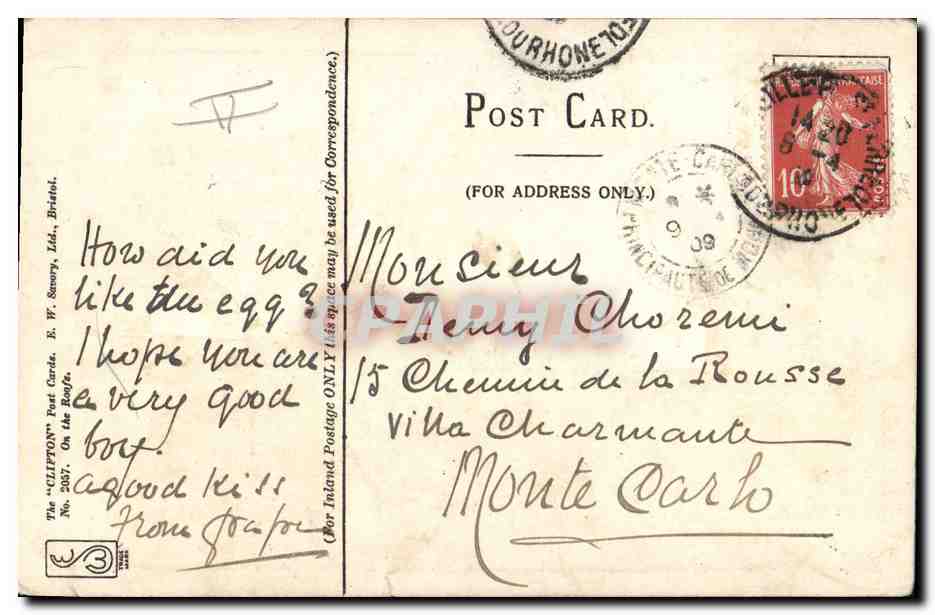 POST CARD.
(FOR ADDRESS ONLY.)
The "CLIFTON" Post Cards. E. W. Savory, Ltd., Bristol.
No. 2057. On the Roofs.
TRADE MARK
(For Inland Postage ONLY this space may be used for Correspondence.)
How did you
like the egg?
I hope you are
a very good
boy.
a good kiss
From
Monsieur
Henry Choremi
15 Chemin de la Rousse
Villa Charmante
Monte Carlo
MONTE CARLO
PRINCIPAUTÉ DE
9
09
DU RHONE
14 20
10
CPAPHIL